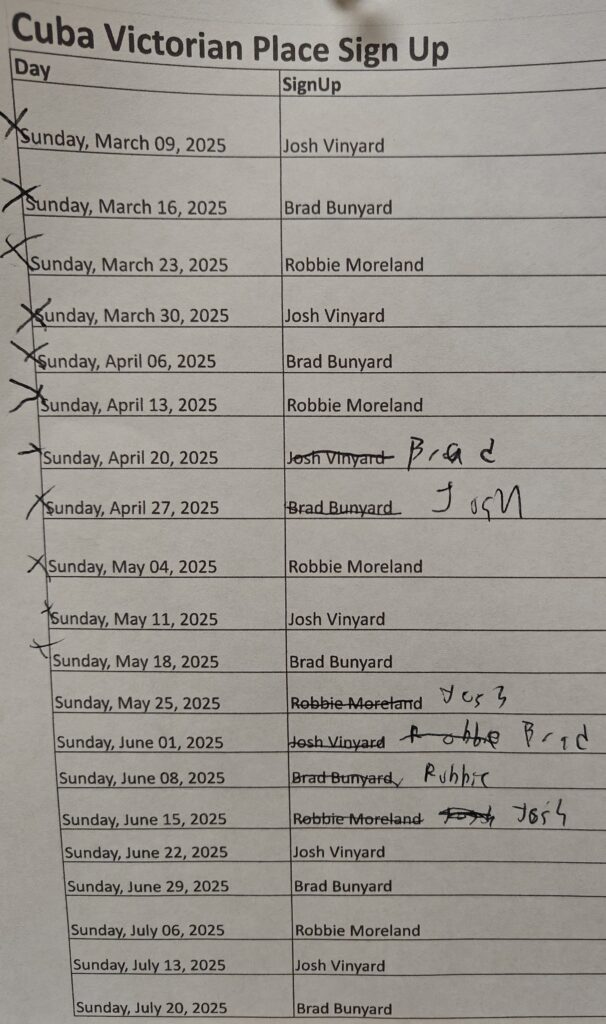 Cuba Victorian Place Sign Up
Day SignUp
Sunday, March 09, 2025 Josh Vinyard
Sunday, March 16, 2025 Brad Bunyard
Sunday, March 23, 2025 Robbie Moreland
Sunday, March 30, 2025 Josh Vinyard
Sunday, April 06, 2025 Brad Bunyard
Sunday, April 13, 2025 Robbie Moreland
Sunday, April 20, 2025 Josh Vinyard Brad
Sunday, April 27, 2025 Brad Bunyard Josh
Sunday, May 04, 2025 Robbie Moreland
Sunday, May 11, 2025 Josh Vinyard
Sunday, May 18, 2025 Brad Bunyard
Sunday, May 25, 2025 Robbie Moreland Josh
Sunday, June 01, 2025 Josh Vinyard Robbie Brad
Sunday, June 08, 2025 Brad Bunyard Robbie
Sunday, June 15, 2025 Robbie Moreland Josh Josh
Sunday, June 22, 2025 Josh Vinyard
Sunday, June 29, 2025 Brad Bunyard
Sunday, July 06, 2025 Robbie Moreland
Sunday, July 13, 2025 Josh Vinyard
Sunday, July 20, 2025 Brad Bunyard